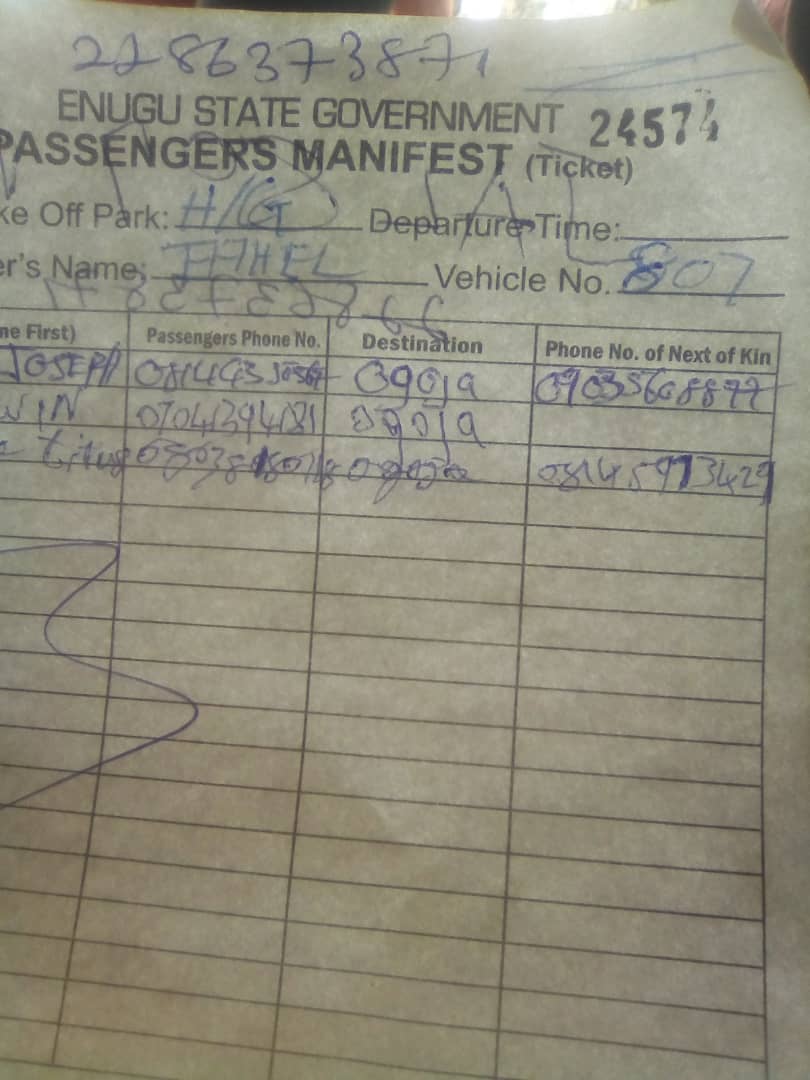 2286373871
ENUGU STATE GOVERNMENT 24574
PASSENGERS MANIFEST (Ticket)
ke Off Park: H/G Departure Time:
er's Name: Vehicle No. 807
me First) Passengers Phone No. Destination Phone No. of Next of Kin
JOSEPH Ogoja 09035608877
WIN 07041394181 Ogoja
Titus Ogoja 08145913429